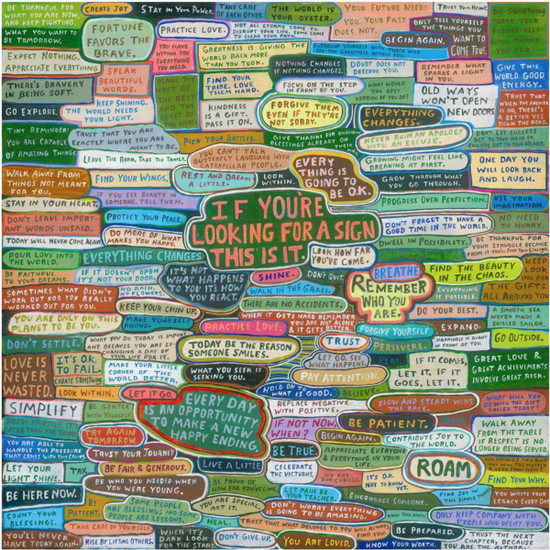 BE THANKFUL FOR
WHAT YOU ARE
NOW, AND KEEP
FIGHTING FOR
WHAT YOU WANT TO
BE TOMORROW.
CREATE JOY
STAY IN YOUR POWER.
TAKE CARE
OF EACH OTHER.
THE WORLD IS
YOUR OYSTER.
YOUR FUTURE
NEEDS YOU. YOUR PAST
DOES NOT.
TRUST YOUR HEART.
FORTUNE
FAVORS THE
BRAVE.
PRACTICE LOVE.
NOT ALL STORMS COME TO
DISRUPT YOUR LIFE. SOME COME
TO CLEAR YOUR PATH.
ONLY TELL YOURSELF
THE THINGS YOU
WANT TO
COME TRUE.
BEGIN AGAIN.
EXPECT NOTHING.
APPRECIATE EVERYTHING
YOU HAVE
WITHIN YOU
EVERYTHING
YOU NEED.
GREATNESS IS GIVING THE
WORLD BACK MORE
THAN YOU TOOK.
NOTHING CHANGES
IF NOTHING CHANGES.
DOUBT DOES NOT
DESERVE YOU.
REMEMBER WHAT
SPARKS A LIGHT
IN YOU.
GIVE THIS
WORLD GOOD
ENERGY.
THERE'S BRAVERY
IN BEING SOFT.
SPEAK
BEAUTIFUL
WORDS.
FIND YOUR
TRIBE. LOVE
THEM HARD.
FOCUS ON THE STEP
IN FRONT OF YOU.
OLD WAYS
WON'T OPEN
NEW DOORS
GO EXPLORE.
KEEP SHINING.
THE WORLD NEEDS
YOUR LIGHT.
KINDNESS
IS A GIFT.
PASS IT ON.
FORGIVE THEM
EVEN IF THEY'RE
NOT SORRY.
EVERYTHING
CHANGES.
TINY REMINDER:
YOU ARE CAPABLE
OF AMAZING THINGS
TRUST THAT YOU ARE
EXACTLY WHERE YOU ARE
MEANT TO BE.
PICK YOUR BATTLES.
NEVER RUIN AN APOLOGY
WITH AN EXCUSE.
LEAVE THE ROAD, TAKE THE TRAILS.
YOU CAN'T TALK
BUTTERFLY LANGUAGE WITH
CATERPILLAR PEOPLE.
EVERY
THING IS
GOING TO
BE O.K.
GROWING MIGHT FEEL LIKE
BREAKING AT FIRST.
ONE DAY YOU
WILL LOOK BACK
AND LAUGH.
WALK AWAY FROM
THINGS NOT MEANT
FOR YOU.
FIND YOUR WINGS.
REST AND DREAM
A LITTLE.
LOOK
WITHIN.
GROW THROUGH WHAT
YOU GO THROUGH.
STAY IN YOUR HEART.
IF YOU SEE BEAUTY IN
SOMEONE, TELL THEM.
PROGRESS OVER PERFECTION.
USE YOUR
IMAGINATION.
DON'T LEAVE IMPORTANT
WORDS UNSAID.
PROTECT YOUR PEACE.
IF YOU'RE
LOOKING FOR A SIGN
THIS IS IT.
DON'T FORGET TO HAVE A
GOOD TIME IN THE WORLD.
NO NEED
TO HURRY.
TODAY WILL NEVER COME AGAIN.
DO MORE OF WHAT
MAKES YOU HAPPY.
DWELL IN POSSIBILITY.
POUR LOVE INTO
THE WORLD
EVERYTHING CHANGES
LOOK HOW FAR
YOU'VE COME.
BE FAITHFUL
TO YOUR DREAMS.
IF IT DOESN'T OPEN
IT'S NOT YOUR DOOR
IT'S NOT
WHAT HAPPENS
TO YOU IT'S HOW
YOU REACT.
SHINE.
DON'T QUIT.
BREATHE
FIND THE BEAUTY
IN THE CHAOS.
LOOK FOR
THE GIFTS
ALL AROUND YOU
SOMETIMES WHAT DIDN'T
WORK OUT FOR YOU REALLY
WORKED OUT FOR YOU.
NO RAIN,
NO FLOWERS.
WALK IN THE GRACE.
REMEMBER
WHO YOU
ARE.
EVERYTHING
IS POSSIBLE.
KEEP YOUR CHIN UP.
THERE ARE NO ACCIDENTS.
DO YOUR BEST.
A SMOOTH SEA
NEVER MADE A
SKILLED SAILOR.
YOU ARE ONLY ON THIS
PLANET TO BE YOU.
MAKE YOURSELF
PROUD.
PRACTICE LOVE.
WHEN IT GETS HARD REMEMBER
YOU ARE NOT ALONE
IT GETS BETTER
FORGIVE YOURSELF
EXPAND.
DON'T SETTLE.
TODAY BE THE REASON
SOMEONE SMILES.
TRUST
PERSEVERE.
GO OUTSIDE.
LOVE IS
NEVER
WASTED.
IT'S O.K.
TO FAIL.
CREATE SOMETHING
MAKE YOUR LITTLE
CORNER OF THE
WORLD BETTER.
WHAT YOU SEEK IS
SEEKING YOU.
LET GO, SEE
WHAT HAPPENS
PLAY
PAY ATTENTION.
IF IT COMES,
LET IT. IF IT
GOES, LET IT.
GREAT LOVE &
GREAT ACHIEVEMENTS
INVOLVE GREAT RISK.
LOOK WITHIN.
LET IT GO.
HOLD ON TO
WHAT IS GOOD.
BELIEVE
SIMPLIFY
BE GENTLE
WITH YOURSELF
EVERY DAY
IS AN OPPORTUNITY
TO MAKE A NEW
HAPPY ENDING.
REPLACE NEGATIVE
WITH POSITIVE.
SLOW AND STEADY WINS
THE RACE.
IF NOT NOW,
WHEN?
BE PATIENT.
WALK AWAY
FROM THE TABLE
IF RESPECT IS NO
LONGER BEING SERVED.
TRY AGAIN
TOMORROW
BEGIN AGAIN.
CONTRIBUTE JOY TO
THE WORLD.
YOU ARE ABLE TO
HANDLE THE PRESSURE
THAT COMES WITH YOUR DREAM
TRUST YOUR JOURNEY
BE TRUE
APPRECIATE EVERYONE &
EVERYTHING IN YOUR
LIFE.
ROAM
LET YOUR
LIGHT SHINE.
BE FAIR & GENEROUS.
LIVE A LITTLE
CELEBRATE
THE VICTORIES.
IT'S O.K.
NOT TO
KNOW.
FIND YOUR WHY.
BE HERE NOW.
BE WHO YOU NEEDED WHEN
YOU WERE YOUNG.
BE PROUD OF
HOW FAR YOU'VE COME.
LET PAIN BE
YOUR TEACHER.
ENCOURAGE SOMEONE.
FIND JOY IN
THE
YOU WRITE YOUR
LEGACY EVERY DAY
COUNT YOUR
BLESSINGS.
BE
PATIENT.
SOME PEOPLE
ARE BLESSINGS AND SOME
PEOPLE ARE LESSONS
YOU ARE SPECIAL
ACT IT.
DON'T WORRY EVERYTHING
IS GOING TO BE AMAZING.
ONLY KEEP COMPANY WITH
PEOPLE WHO UPLIFT YOU.
TAKE CARE OF YOURSELF
HEAL.
TRUST THAT WHAT BELONGS TO YOU WILL ALWAYS
FIND YOU
BE PREPARED.
TRUST THE NEXT
CHAPTER, BECAUSE
YOU ARE THE AUTHOR.
YOU'LL NEVER
HAVE TODAY AGAIN.
RISE BY LIFTING OTHERS.
WHEN IT'S
DARK LOOK
FOR THE STARS
DON'T GIVE UP.
YOU ARE LOVED.
KNOW YOUR WORTH.